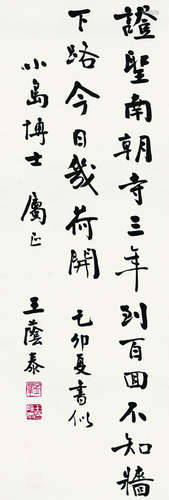 證聖南朝寺三年到百回不知牆
下路今日幾荷開 乙卯夏書似
小島博士屬正 王蔭泰